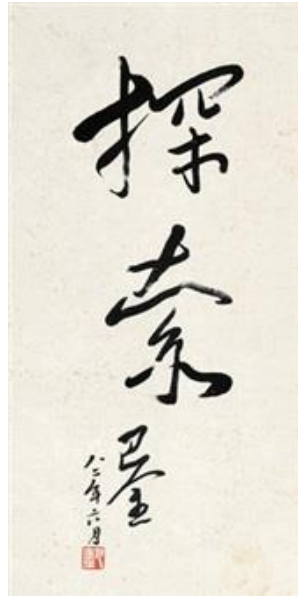 探索
巴金
八二年六月